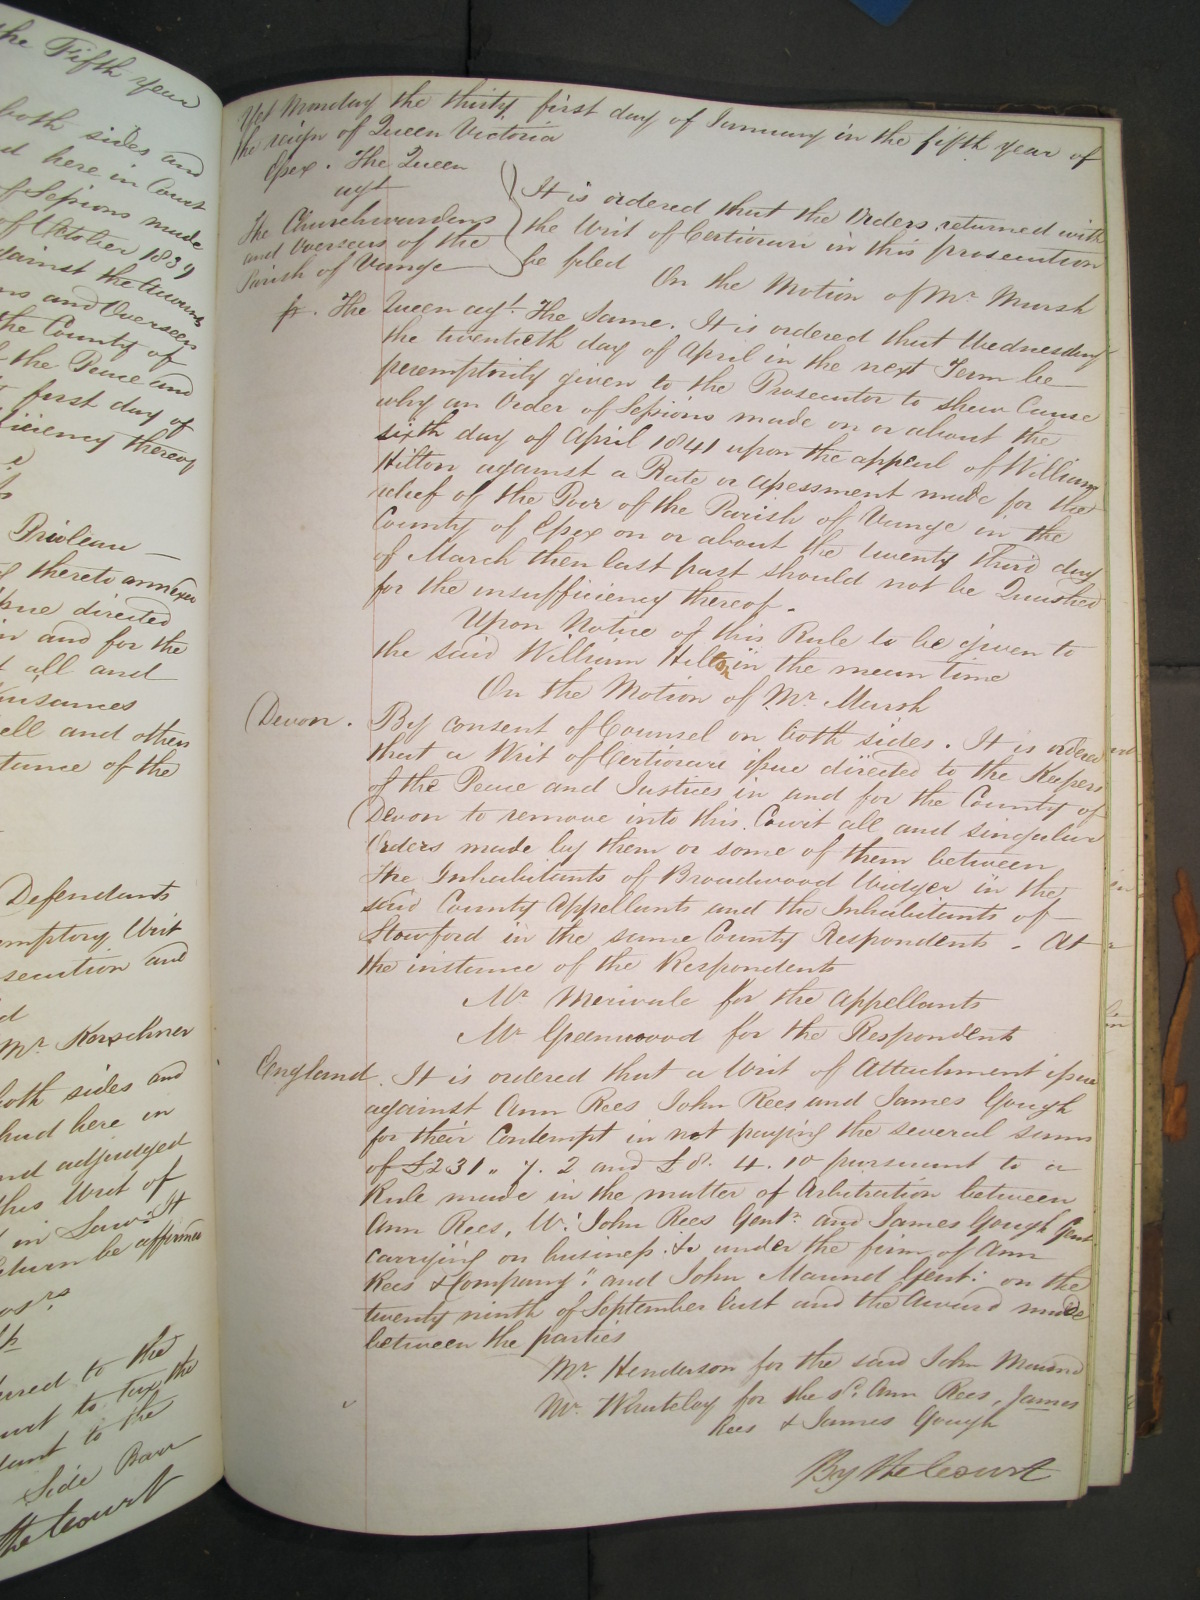 the Fifth year
both sides and
d here in Court
f Sessions made
of October 1839
gainst the Accounts
ns and Overseers
the County of
f the Peace and
first day of
iciency thereof
Prioleau —
thereto annexed
ssue directed
in and for the
t all and
Nuisances
ell and others
tance of the
Defendants
emptory Writ
secution and
d
Mr Kerschner
both sides and
had here in
nd adjudged
this Writ of
in Law. It
eturn be affirmed
erred to the
urt to tax the
dant to the
Side Barr
the Court
Yet Monday the thirty first day of January in the fifth year of
the reign of Queen Victoria
Essex. The Queen
agt
The Churchwardens
and Overseers of the
Parish of Vange
It is ordered that the Orders returned with
the Writ of Certiorari in this prosecution
be filed
On the Motion of Mr Marsh
The Queen agt The Same. It is ordered that Wednesday
the twentieth day of April in the next Term be
peremptorily given to the Prosecutor to shew Cause
why an Order of Sessions made on or about the
sixth day of April 1841 upon the appeal of William
Hilton against a Rate or assessment made for the
relief of the Poor of the Parish of Vange in the
County of Essex on or about the twenty third day
of March then last past should not be Quashed
for the insufficiency thereof.
Upon Notice of this Rule to be given to
the said William Hilton in the mean time
On the Motion of Mr Marsh
Devon. By consent of Counsel on both sides. It is ordered
that a Writ of Certiorari issue directed to the Keepers
of the Peace and Justices in and for the County of
Devon to remove into this Court all and singular
Orders made by them or some of them between
The Inhabitants of Broadwood Widger in the
said County Appellants and the Inhabitants of
Stowford in the same County Respondents. At
the instance of the Respondents
Mr Merivale for the Appellants
Mr Greenwood for the Respondents
England. It is ordered that a Writ of Attachment issue
against Ann Rees John Rees and James Gough
for their Contempt in not paying the several sums
of £231 " 7. 2 and £8. 4. 10 pursuant to a
Rule made in the matter of Arbitration between
Ann Rees, W: John Rees Gent: and James Gough Gent
carrying on business &c under the firm of Ann
Rees & Company" and John Maund Gent: on the
twenty ninth of September last and the Award made
between the parties
Mr. Henderson for the said John Maund
Mr. Whateley for the sd. Ann Rees, James
Rees & James Gough
By the Court